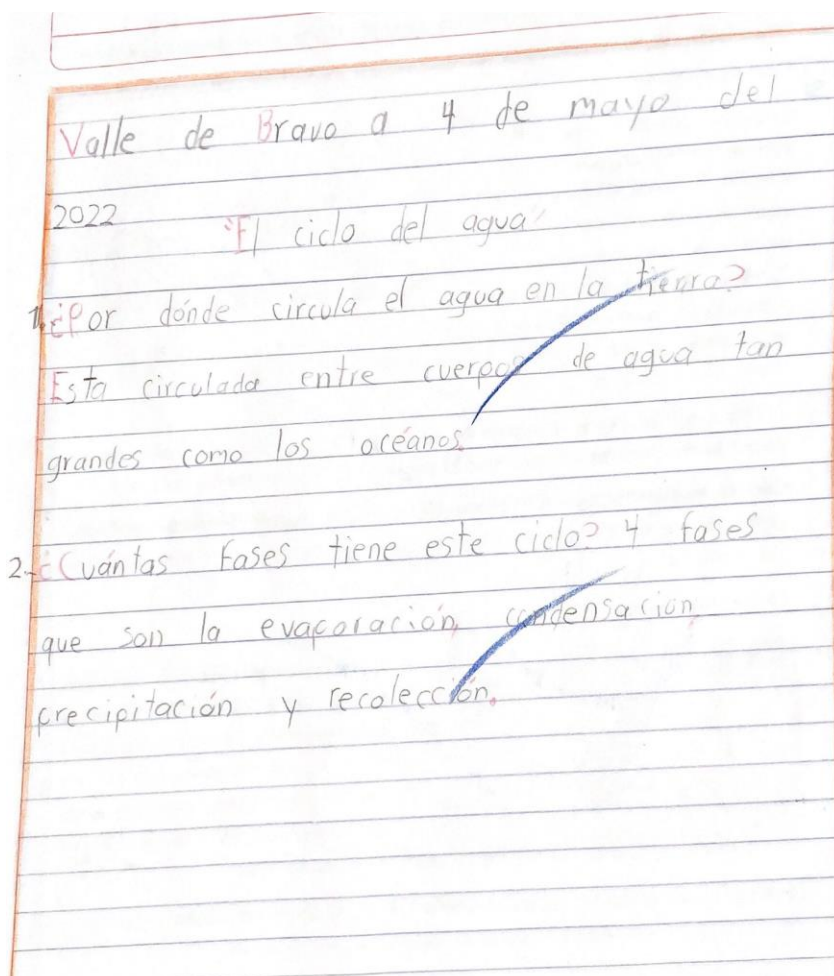 Valle de Bravo a 4 de mayo del
2022
"El ciclo del agua"
1.¿Por dónde circula el agua en la tierra?
Esta circulada entre cuerpos de agua tan
grandes como los océanos.
2-¿Cuántas fases tiene este ciclo? 4 fases
que son la evaporación, condensación,
precipitación y recolección.